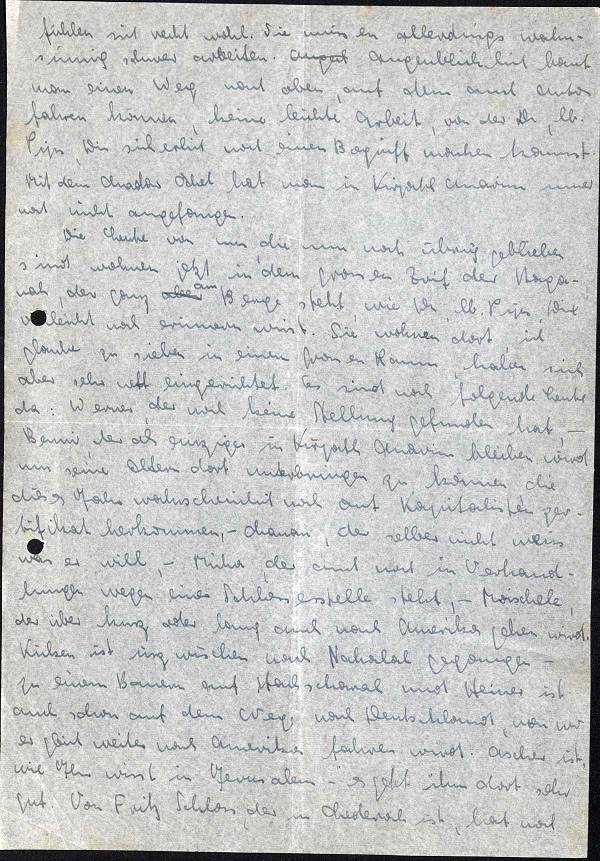 fühlen sich recht wohl. Sie müssen allerdings wahn-
sinnig schwer arbeiten. Augenblicklich baut
man einen Weg nach oben, auf dem auch Autos
fahren können, keine leichte Arbeit, von der Du, lb.
Pips, Dir sicherlich noch einen Begriff machen kannst.
Mit dem Chadar Ochel hat man in Kirjath Anavim immer
noch nicht angefangen.
Die Leute von uns, die nun noch übrig geblieben
sind wohnen jetzt in dem grossen Zrif der
der ganz am Berge steht, wie Du lb. Pips, Dich
vielleicht noch erinnern wirst. Sie wohnen dort, ich
glaube zu sieben in einem grossen Raum, haben sich
aber sehr nett eingerichtet. Es sind noch folgende Leute
da: Werner, der noch keine Stellung gefunden hat, –
Benni, der als einziger in Kirjath Anavim bleiben wird
um seine Eltern dort unterbringen zu können die
dieses Jahr wahrscheinlich noch auf Kapitalisten zer-
tifikat herkommen, – Chanan, der selber nicht weiss
was er will, – Micha, der auch noch in Verhand-
lungen wegen einer Schlosserstelle steht, – Moischele,
der über kurz oder lang auch nach Amerika gehen wird.
Küken ist inzwischen nach Nahalal gegangen –
zu einem Bauern auf Hachscharah und Heiner ist
auch schon auf dem Weg nach Deutschland, von wo
er gleich weiter nach Amerika fahren wird. Ascher ist,
wie Ihr wisst in Jerusalem – es geht ihm dort sehr
gut. Von Fritz Schloss, der in Chederah ist, hat noch